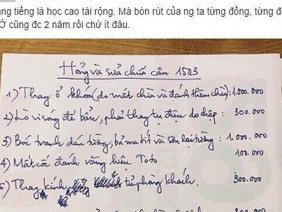 ng tiếng là học cao tài rộng. Mà bòn rút của ng ta từng đồng, từng đ
Ở cũng đc 2 năm rồi chứ ít đâu.
Hỏng và sửa chữa căn 1503
1) Thay ổ khóa (do mất chìa và đánh thêm chìa): 1.000.000
2) Lò vi sóng để bẩn, phải thay tụ điện do chập: 300.000
3) Bóc tranh dán tường, bả matit và sơn lại tường: 1.000.000
4) Mất cốc đánh răng hiệu Toto 100.000
5) Thay kính tủ phòng khách. 300.000